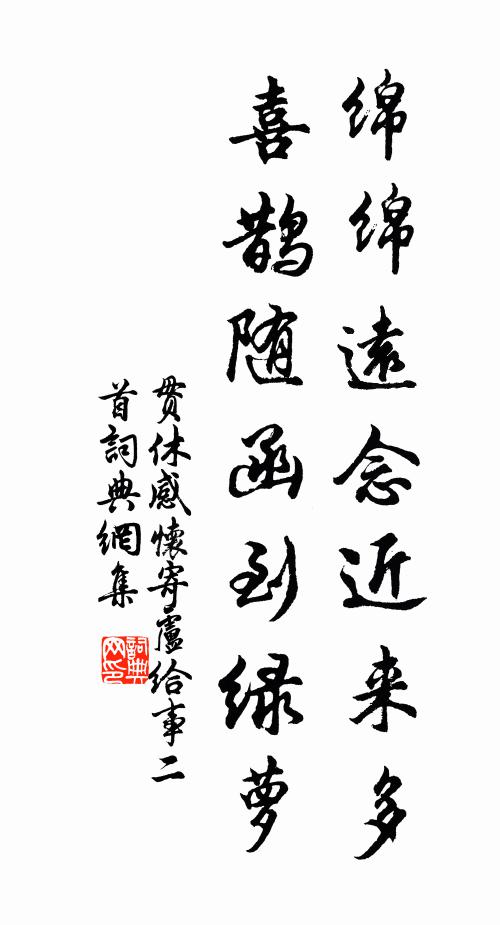 绵绵遠念近来多
喜鹊随函到绿萝
贯休感懷寄盧给事二
首詞典網集
詞典
网印